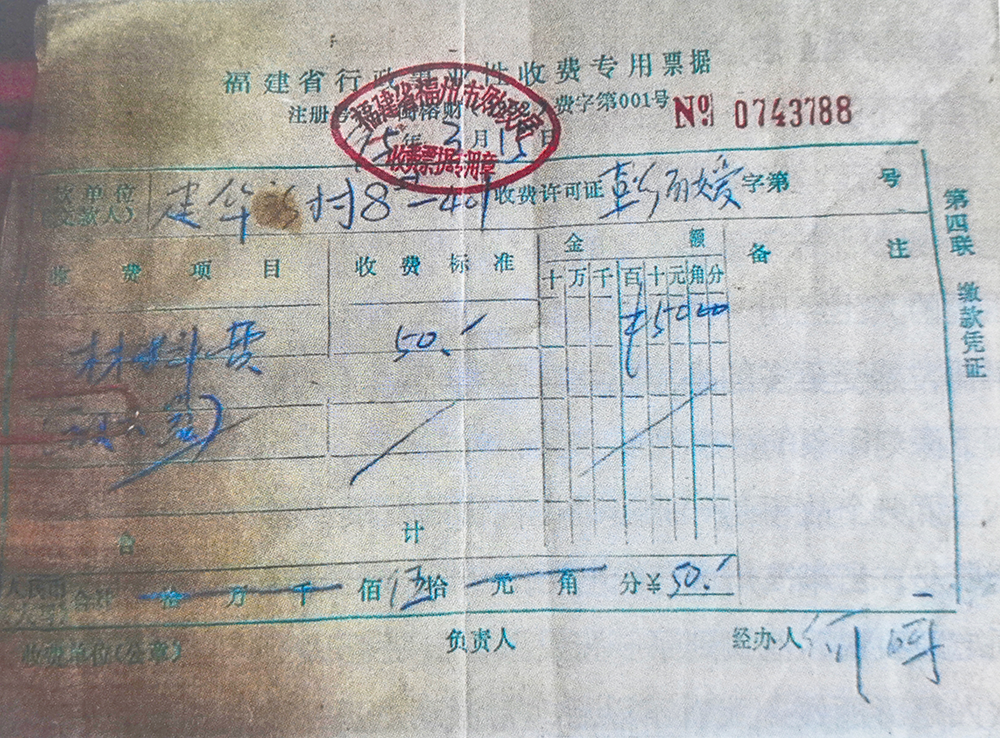 福建省行政事业性收费专用票据
注册号 闽榕财 费字第001号 № 0743788
福建省福州市财政局
收费票据专用章
95年3月15日
单位
(交款人)
建华新村8-401
收费许可证 字第 号
收费项目 收费标准 金额 备注
十万千百十元角分
材料费 50. ¥5000
合计
人民币
(大写)
合计 拾 万 千 佰 伍拾 元 角 分 ¥50.
收费单位(公章) 负责人 经办人
第四联 缴款凭证